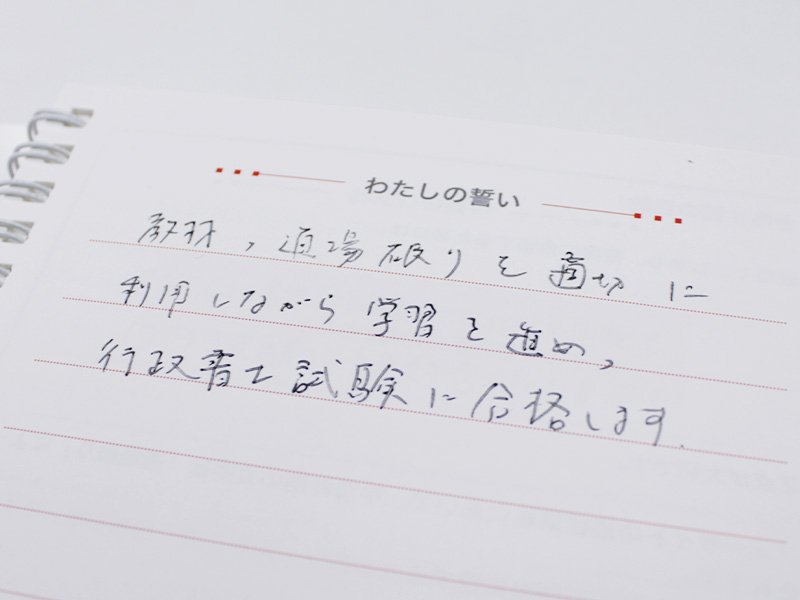 わたしの誓い
教材，道場破りを適切に
利用しながら学習を進め，
行政書士試験に合格します．